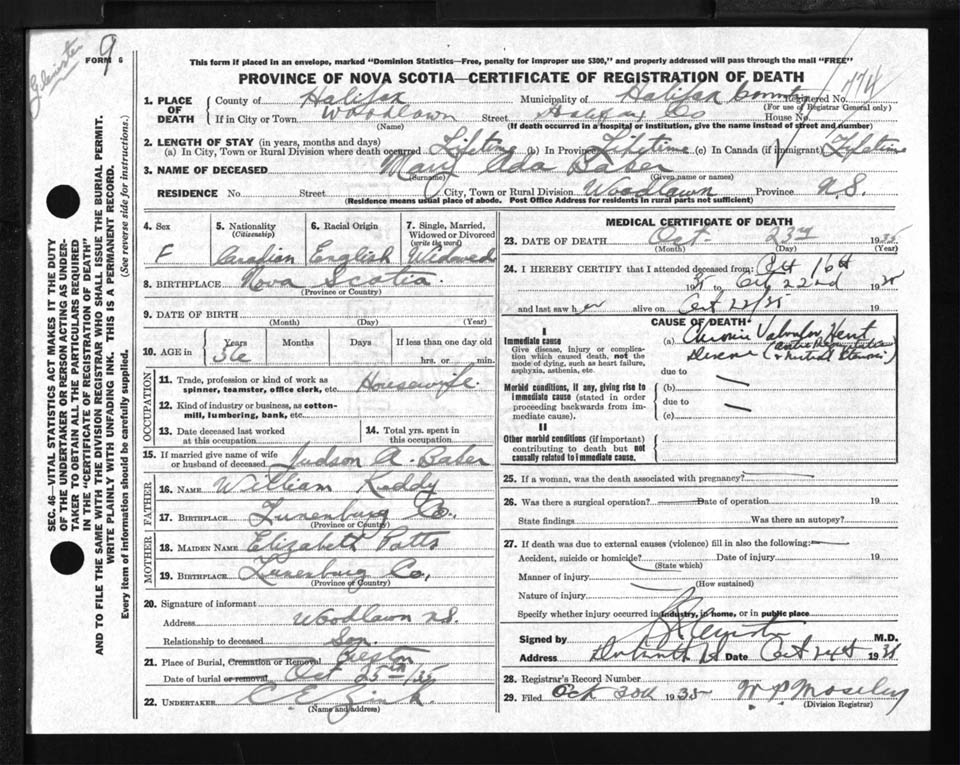 FORM 6
9
This form if placed in an envelope, marked "Dominion Statistics—Free, penalty for improper use $300," and properly addressed will pass through the mail "FREE"
PROVINCE OF NOVA SCOTIA—CERTIFICATE OF REGISTRATION OF DEATH
774
1. PLACE OF DEATH
County of Halifax Municipality of Halifax County Registered No.
(For use of Registrar General only)
If in City or Town Woodlawn Street Halifax Co House No.
(Name) (If death occurred in a hospital or institution, give the name instead of street and number)
2. LENGTH OF STAY (in years, months and days)
(a) In City, Town or Rural Division where death occurred Lifetime (b) In Province Lifetime (c) In Canada (if immigrant) Lifetime
3. NAME OF DECEASED Mary Ada Baker
(Surname) (Given name or names)
RESIDENCE No. Street City, Town or Rural Division Woodlawn Province N.S.
(Residence means usual place of abode. Post Office Address for residents in rural parts not sufficient)
4. Sex
F
5. Nationality
(Citizenship)
Canadian
6. Racial Origin
English
7. Single, Married,
Widowed or Divorced
(write the word)
Widowed
8. BIRTHPLACE Nova Scotia.
(Province or Country)
9. DATE OF BIRTH
(Month) (Day) (Year)
10. AGE in
Years Months Days If less than one day old
hrs. or min.
OCCUPATION
11. Trade, profession or kind of work as
spinner, teamster, office clerk, etc. Housewife.
12. Kind of industry or business, as cotton-
mill, lumbering, bank, etc.
13. Date deceased last worked
at this occupation
14. Total yrs. spent in
this occupation
15. If married give name of wife
or husband of deceased Judson A. Baker
FATHER
16. NAME William Keddy
17. BIRTHPLACE Lunenburg Co.
(Province or Country)
MOTHER
18. MAIDEN NAME Elizabeth Potts
19. BIRTHPLACE Lunenburg Co,
(Province or Country)
20. Signature of informant
Address Woodlawn N.S.
Relationship to deceased Son.
21. Place of Burial, Cremation or Removal Preston
Date of burial or removal Oct 25th/35
22. UNDERTAKER C. E. Zink
(Name and address)
MEDICAL CERTIFICATE OF DEATH
23. DATE OF DEATH Oct. 23rd 1935
(Month) (Day) (Year)
24. I HEREBY CERTIFY that I attended deceased from: Oct 16th
1935 to Oct 22nd 1935
and last saw her alive on Oct 22/35
CAUSE OF DEATH
I
Immediate cause
Give disease, injury or complica-
tion which caused death, not the
mode of dying, such as heart failure,
asphyxia, asthenia, etc.
(a) Chronic Valvular Heart
Disease
due to
Morbid conditions, if any, giving rise to
immediate cause (stated in order
proceeding backwards from im-
mediate cause).
(b)
due to
(c)
II
Other morbid conditions (if important)
contributing to death but not
causally related to immediate cause.
25. If a woman, was the death associated with pregnancy?
26. Was there a surgical operation? Date of operation 19
State findings Was there an autopsy?
27. If death was due to external causes (violence) fill in also the following:
Accident, suicide or homicide? Date of injury 19
(State which)
Manner of injury
(How sustained)
Nature of injury
Specify whether injury occurred in industry, in home, or in public place
Signed by M.D.
Address Date Oct 24th 1935
28. Registrar's Record Number
29. Filed Oct 30th 1935
(Division Registrar)
SEC. 46—VITAL STATISTICS ACT MAKES IT THE DUTY
OF THE UNDERTAKER OR PERSON ACTING AS UNDER-
TAKER TO OBTAIN ALL THE PARTICULARS REQUIRED
IN THE "CERTIFICATE OF REGISTRATION OF DEATH"
AND TO FILE THE SAME WITH THE DIVISION REGISTRAR WHO SHALL ISSUE THE BURIAL PERMIT.
WRITE PLAINLY WITH UNFADING INK. THIS IS A PERMANENT RECORD.
Every item of information should be carefully supplied. (See reverse side for instructions.)